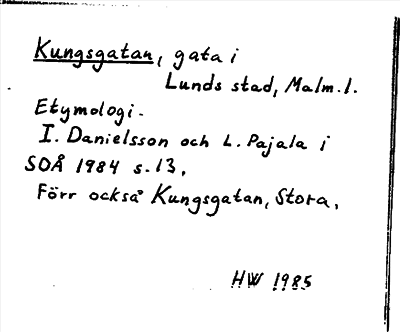 Kungsgatan, gata i
Lunds stad, Malm.l.
Etymologi.
I. Danielsson och L. Pajala i
SOÅ 1984 s.13.
Förr också Kungsgatan, Stora.
HW 1985